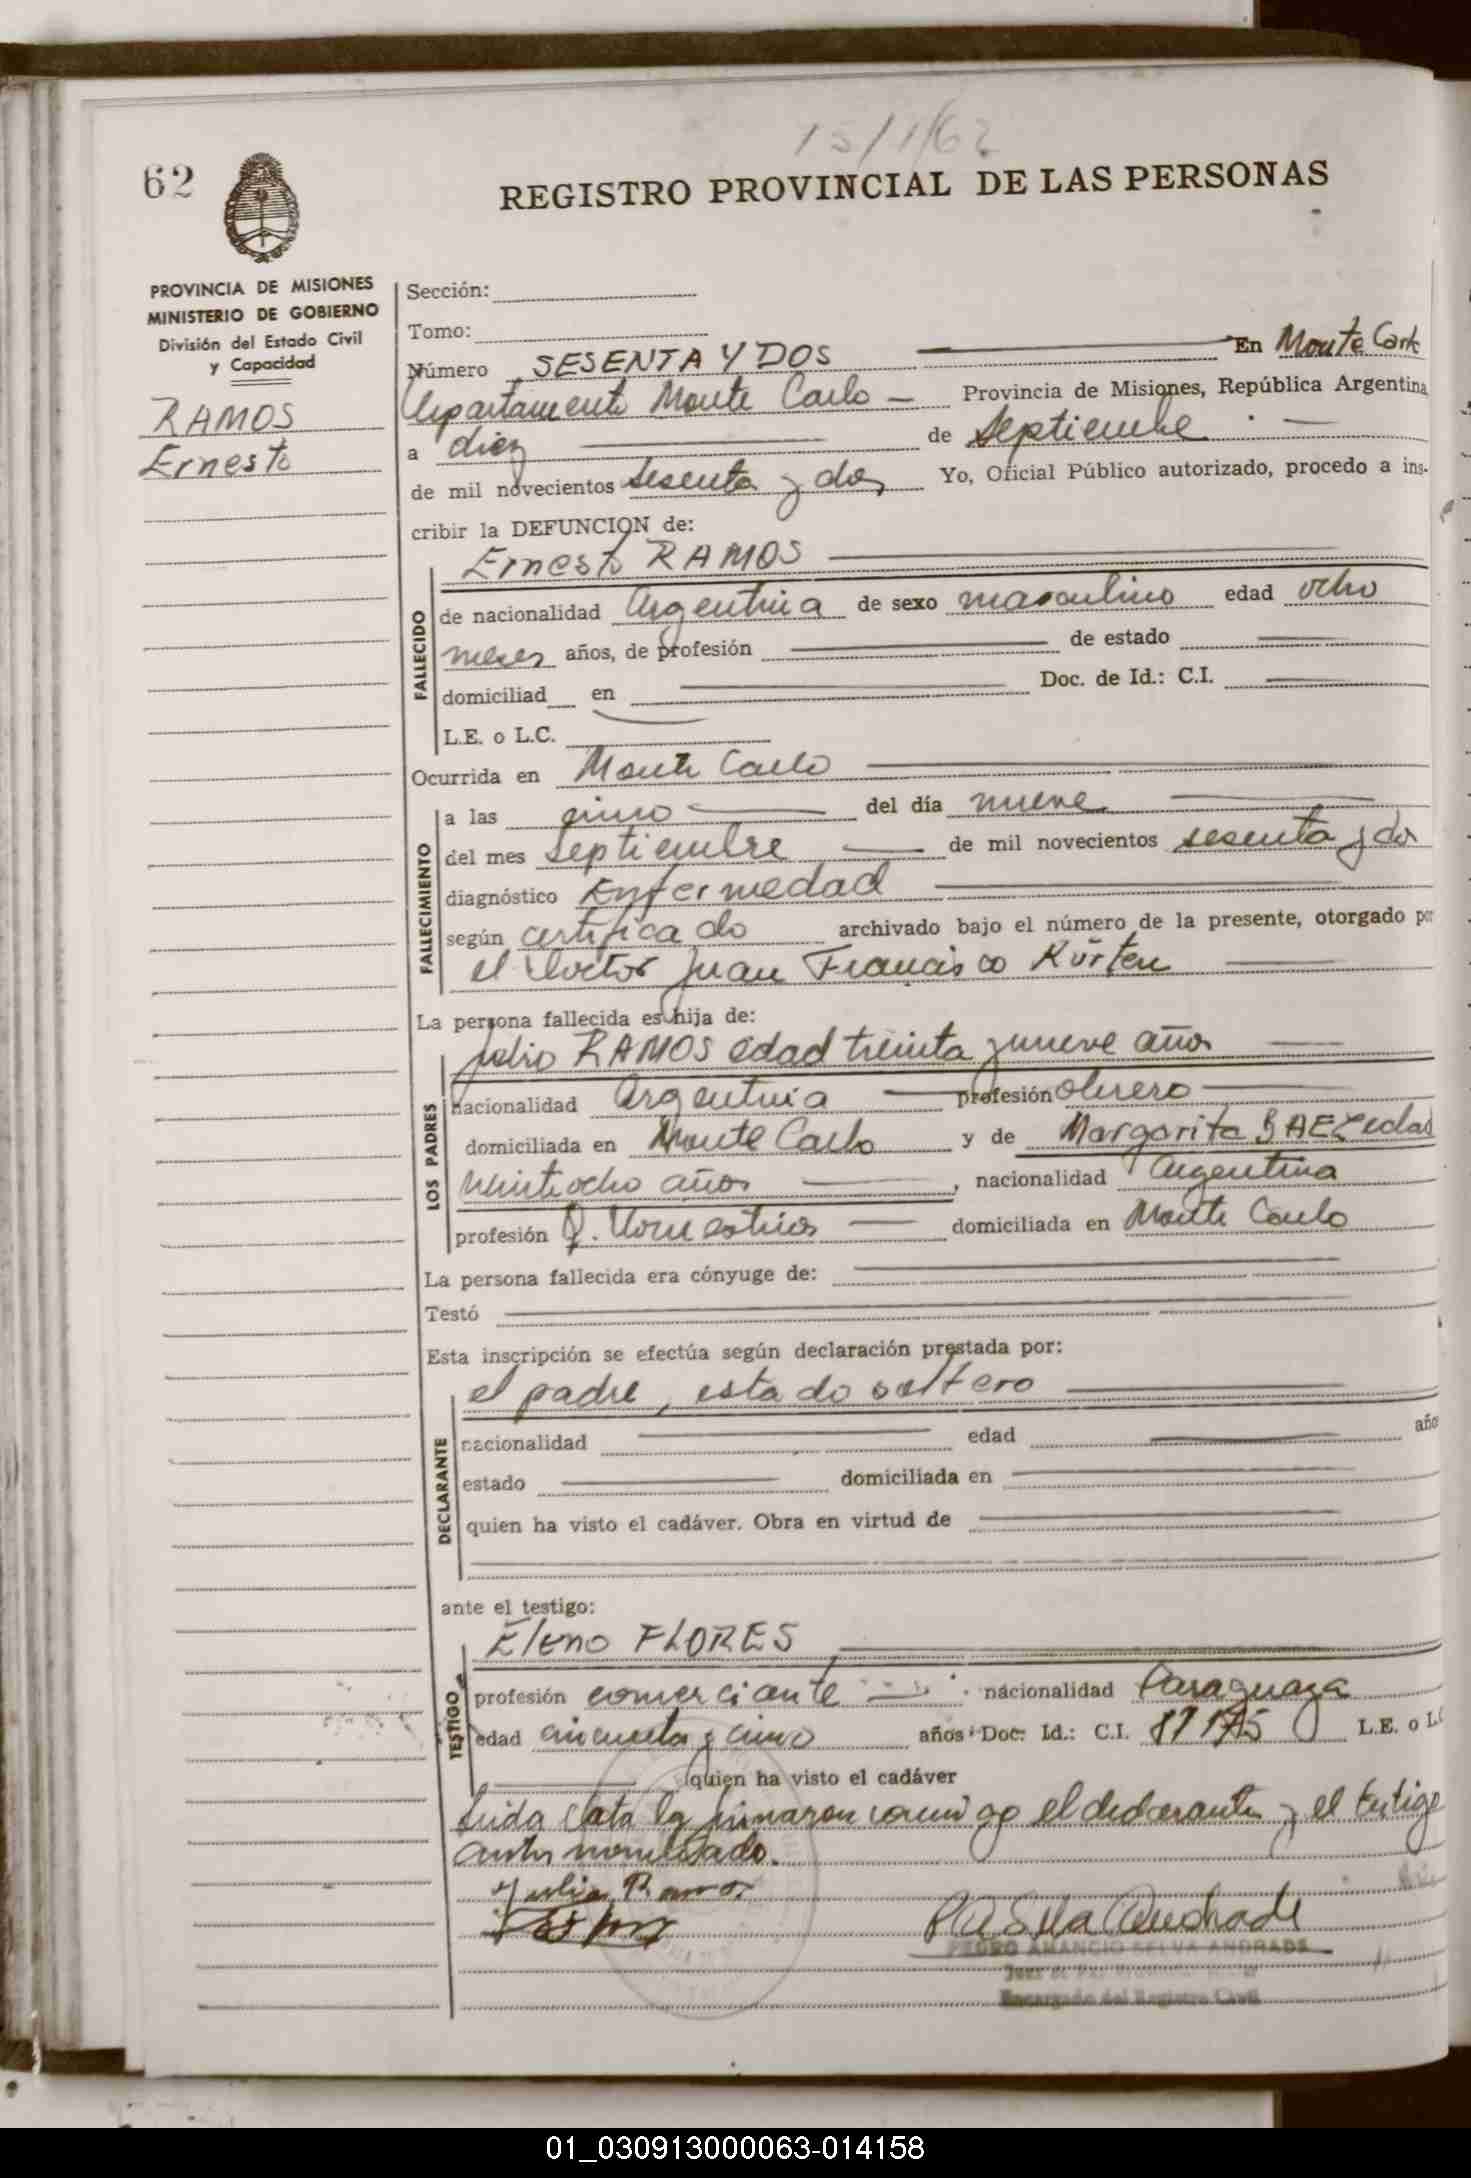 15/1/62
62
REGISTRO PROVINCIAL DE LAS PERSONAS
PROVINCIA DE MISIONES
MINISTERIO DE GOBIERNO
División del Estado Civil
y Capacidad
RAMOS
Ernesto
Sección:
Tomo:
Número SESENTA Y DOS En Monte Carlo
Departamento Monte Carlo Provincia de Misiones, República Argentina
a diez de Septiembre
de mil novecientos sesenta y dos Yo, Oficial Público autorizado, procedo a ins-
cribir la DEFUNCION de:
Ernesto RAMOS
FALLECIDO
de nacionalidad Argentina de sexo masculino edad ocho
meses años, de profesión de estado
domiciliad en Doc. de Id.: C.I.
L.E. o L.C.
Ocurrida en Monte Carlo
FALLECIMIENTO
a las cinco del día nueve
del mes Septiembre de mil novecientos sesenta y dos
diagnóstico Enfermedad
según certificado archivado bajo el número de la presente, otorgado por
el Doctor Juan Francisco Kürten
La persona fallecida es hija de:
LOS PADRES
Julio RAMOS edad treinta y nueve años
nacionalidad Argentina profesión obrero
domiciliada en Monte Carlo y de Margarita BAEZ edad
veintiocho años , nacionalidad Argentina
profesión Q. Domesticos domiciliada en Monte Carlo
La persona fallecida era cónyuge de:
Testó
Esta inscripción se efectúa según declaración prestada por:
DECLARANTE
el padre, estado soltero
nacionalidad edad año
estado domiciliada en
quien ha visto el cadáver. Obra en virtud de
ante el testigo:
TESTIGO
Eleno FLORES
profesión comerciante nacionalidad Paraguaya
edad cincuenta y cinco años Doc. Id.: C.I. L.E. o L.C
quien ha visto el cadáver
Leida el acta la firmaron conmigo el declarante y el testigo
antes nombrado.
Julio Ramos
P A Selva Andrade
PEDRO AMANCIO SELVA ANDRADE
Juez de Paz
Encargado del Registro Civil
01_030913000063-014158